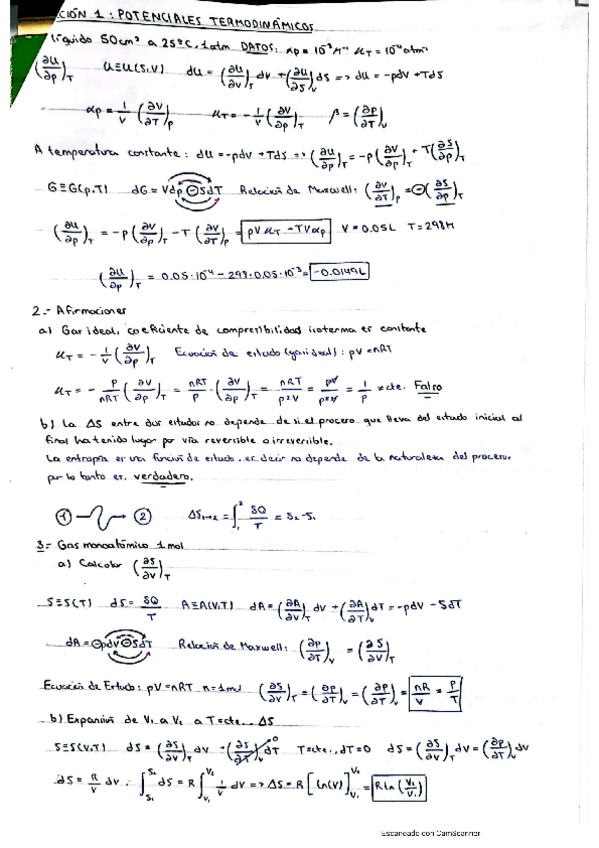 CIÓN 1: POTENCIALES TERMODINÁMICOS
líquido 50cm³ a 25ºC, 1atm DATOS: αp = 10⁻³K⁻¹ κT = 10⁻⁴atm⁻¹
(∂U/∂p)T U≡U(S,V) dU = (∂U/∂V)s dV + (∂U/∂S)v dS => dU = -pdV + TdS
αp = 1/V (∂V/∂T)p κT = -1/V (∂V/∂p)T β = (∂p/∂T)v
A temperatura constante: dU = -pdV + TdS => (∂U/∂p)T = -p(∂V/∂p)T + T(∂S/∂p)T
G≡G(p,T) dG = Vdp ⊖ SdT Relación de Maxwell: (∂V/∂T)p = ⊖(∂S/∂p)T
(∂U/∂p)T = -p(∂V/∂p)T - T(∂V/∂T)p = pVκT - TVαp V = 0.05L T = 298K
(∂U/∂p)T = 0.05·10⁻⁴ - 298·0.05·10⁻³ = -0.0149L
2.- Afirmaciones
a) Gas ideal, coeficiente de compresibilidad isoterma es constante
κT = -1/V (∂V/∂p)T Ecuación de estado (gas ideal): pV = nRT
κT = - p/nRT (∂V/∂p)T = nRT/p · (∂V/∂p)T = nRT/p²V = pV/p²V = 1/p ≠ cte. Falso
b) La ΔS entre dos estados no depende de si el proceso que lleva del estado inicial al
final ha tenido lugar por vía reversible o irreversible.
La entropía es una función de estado, es decir no depende de la naturaleza del proceso,
por lo tanto es verdadero.
① ② ΔS₁→₂ = ∫₁² δQ/T = S₂-S₁
3.- Gas monoatómico 1mol
a) Calcular (∂S/∂V)T
S≡S(T) dS = δQ/T A≡A(V,T) dA = (∂A/∂V)T dV + (∂A/∂T)v dT = -pdV - SdT
dA = ⊖pdV ⊖ SdT Relación de Maxwell: (∂p/∂T)v = (∂S/∂V)T
Ecuación de Estado: pV = nRT n = 1mol (∂S/∂V)T = (∂p/∂T)v = (∂p/∂T)v = nR/V = P/T
b) Expansión de V₁ a V₂ a T=cte. ΔS
S≡S(V,T) dS = (∂S/∂V)T dV + (∂S/∂T)v dT 0 T=cte., dT=0 dS = (∂S/∂V)T dV = (∂p/∂T)v dV
dS = R/V dV ; ∫ dS = R ∫ 1/V dV => ΔS = R [ln(V)] = R ln (V₂/V₁)
Escaneado con CamScanner